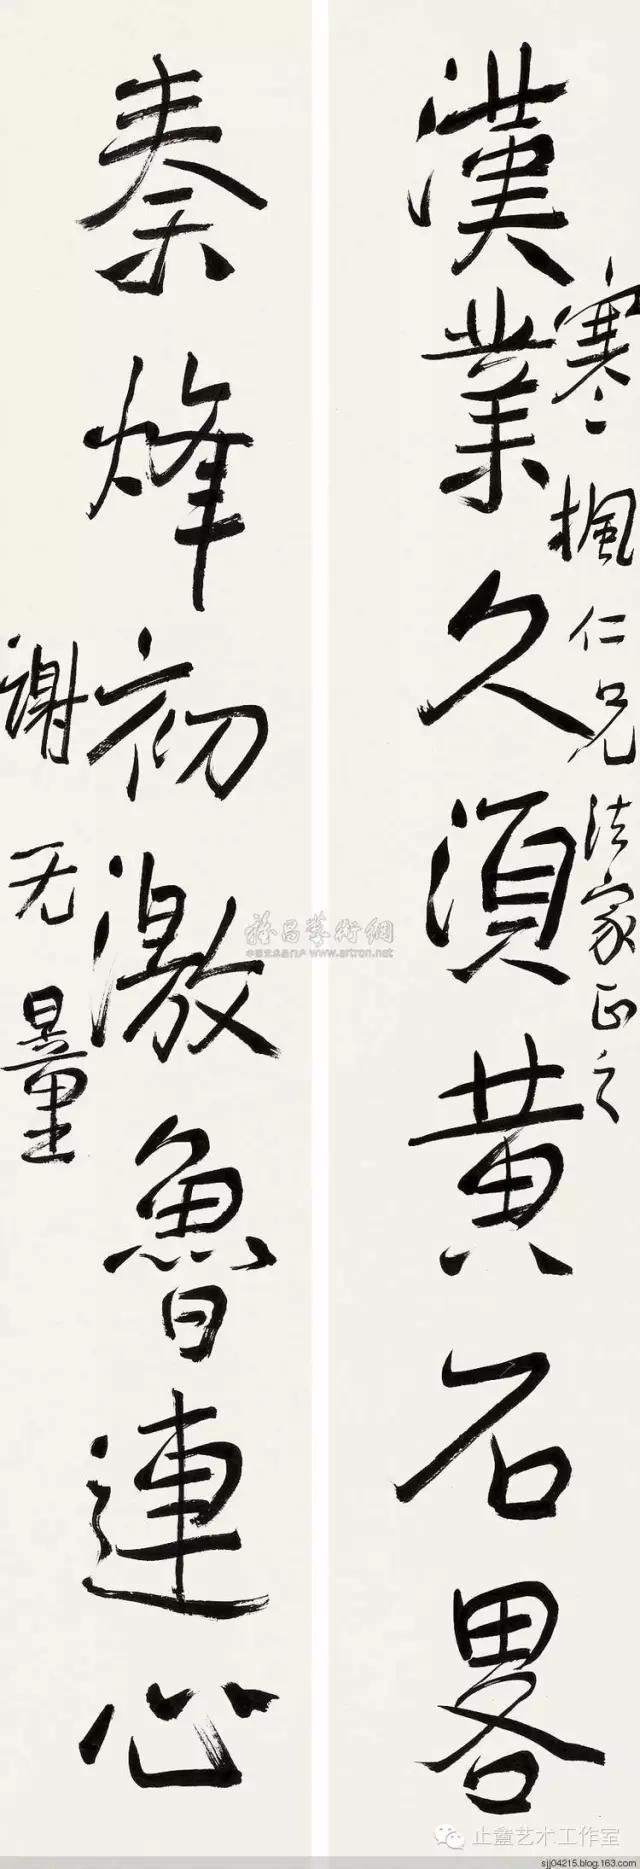 漢業久須黄石畧
寒楓仁兄法家正之
秦烽初激魯連心
謝无量
雅昌藝術網
中国艺术品门户 www.artron.net
止盦艺术工作室
sjj04215.blog.163.com